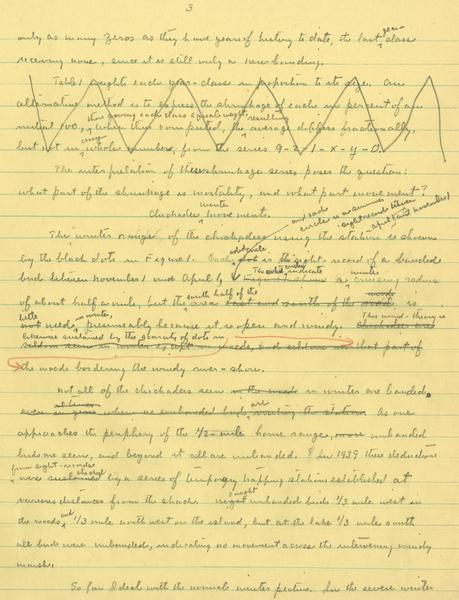 3
only as many zeros as they have years of history to date, the last year-class
receiving none, since it is still only a new banding.
Table 1 weights each year-class in proportion to its size. An
alternative method is to express the shrinkage of each in percent of an
initial 100, thus giving each class equal weight. When thus computed, the resulting average differs fractionally,
but not in any whole numbers, from the series 9-2-1-x-y-0.
The interpretation of these shrinkage series poses the question:
what part of the shrinkage is mortality, and what part movement?
Chickadee winter movements.
The winter range of the chickadees using the station is shown
by the black dots in Figure 1. Each dot is the sight-record of a banded
and each circle is a summer sight record between April 1 and November 1
bird between November 1 and April 1. The dots indicate a winter cruising radius
of about half a mile, but the south half of the area is
little used in winter, presumably because it is open and windy. This wind-theory is
likewise sustained by the scarcity of dots in that part of
the woods bordering the windy river-shore.
Not all of the chickadees seen in winter are banded.
As one
approaches the periphery of the 1/2-mile home range, unbanded
birds are seen, and beyond it all are unbanded. In 1939 these deductions
from sight-records were checked by a series of temporary trapping stations established at
various distances from the shack. I caught unbanded birds 1/3 mile west in
the woods and 1/3 mile northwest on the island, but at the lake 1/3 mile south
all birds were unbanded, indicating no movement across the intervening windy
marsh.
So far I deal with the normal winter picture. In the severe winter